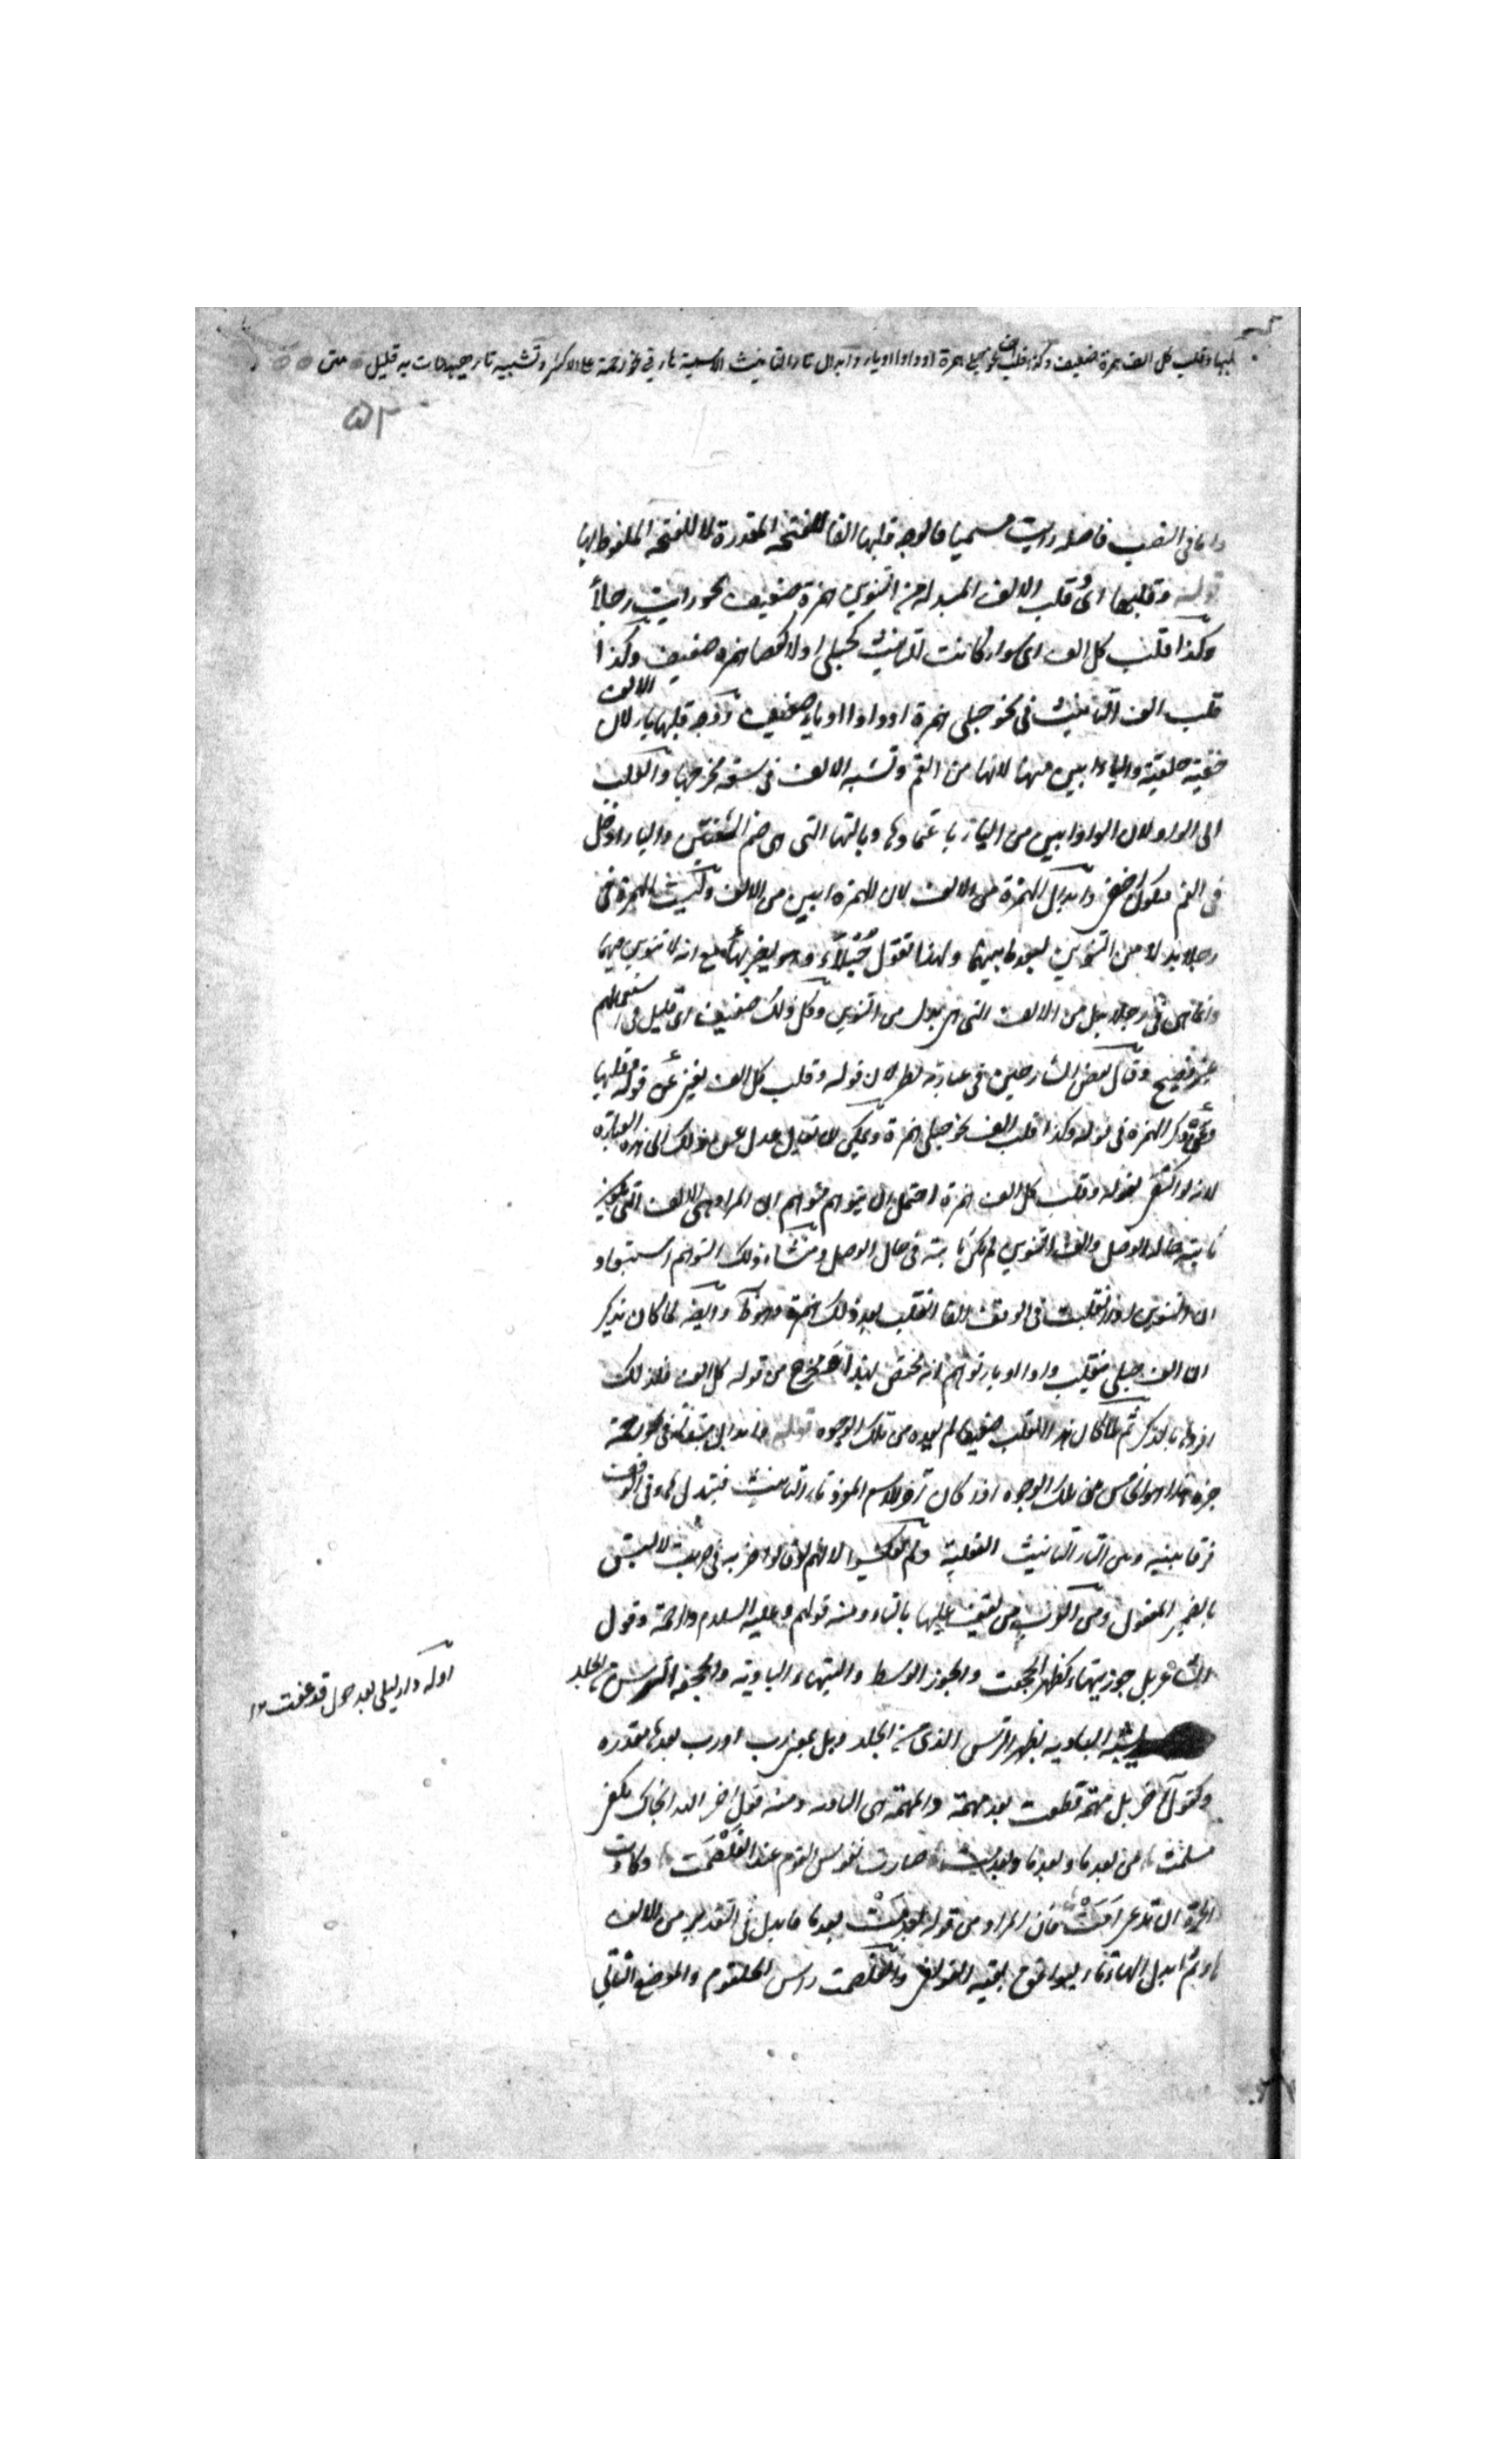 قلبها وقلب كل الف همزة ضعيف وكذا قلب الف نحو حبلى همزة او واوا او ياء وابدال تاء التانيث الاسمية هاء في نحو رحمة على الاكثر وتشبيه تاء هيهات به قليل متن
۵۲
واما في النصب فاصله رايت مسميا فالوجه قلبها الفا للفتحة المقدرة لا للفتحة الملفوظ بها
قوله وقلبها اى قلب الالف المبدلة من التنوين همزة ضعيف نحو رايت رجلأ
وكذا قلب كل الف اى سواء كانت للتانيث كحبلى او لا كعصا همزة ضعيف وكذا
قلب الف التانيث في نحو حبلى همزة او واوا او ياء ضعيف ووجه قلبها ياء لان الالف
خفية حلقية والياء ابين منها لانها من الفم وتشبه الالف في سعة مخرجها والقلب
الى الواو لان الواو ابين من الياء باعتمادها وبالتها التى هى ضم الشفتين والياء ادخل
في الفم فيكون اخفى وابدال الهمزة من الالف لان الهمزة ابين من الالف وليست الهمزة في
رجلا بدلا من التنوين لبعد ما بينهما ولهذا تقول حُبْلَأْ وهو يضربهأ مع انه لا تنوين فيهما
وانما هى في رجلا بدل من الالف التى هى بدل من التنوين وكل ذلك ضعيف اى قليل في استعمالهم
غير فصيح وقال بعض الشارحين في عبارته نظر لان قوله وقلب كل الف يغنى عن قوله وقلبها
وعن ذكر الهمزة في قوله وكذا قلب الف نحو حبلى همزة ويمكن ان يقال عدل عن ذلك الى هذه العبارة
لانه لو اكتفى بقوله وقلب كل الف همزة احتمل ان يتوهم متوهم ان المراد هى الالف التى يكون
ثابتة حالة الوصل والف التنوين لم يكن ثابتة في حال الوصل ومنشاء ذلك التوهم استبعاد
ان التنوين اذا انقلبت في الوقف الفا انقلب بعد ذلك همزة وهو وايضا لما كان يذكر
ان الف حبلى ينقلب واوا او ياء توهم انه مختص بهذا مخرج من قوله كل الف فلذلك
افردها بالذكر ثم لما كان هذا القلب ضعيفا لم يعده من تلك الوجوه قوله وابدال في نحو رحمة
هذا هو الخامس من تلك الوجوه اذا كان آخر الاسم المفرد تاء التانيث فيبدل هاء في الوقف
فرقا بينه وبين التاء التانيث الفعلية ولم يعكسوا لانهم لو قالوا ضربه في ضربت لالتبس
بالضمير المفعول ومن العرب من يقف عليها بالتاء ومنه قولهم وعليه السلام والرحمت وقول
الشاعر بل جوز تيهاء كظهر الحجفت والجوز الوسط والتيهاء البادية والحجفة الترس من الجلد
يشبه البادية بظهر الترس الذى من الجلد وبل بمعنى رب او رب بعدها مقدرة
وكقول آخر بل مهمة قطعت بعد مهمة والمهمة هى البادية ومنه قول آخر الله نجاك بكفى
مسلمت من بعدما وبعدما وبعدمت صارت نفوس القوم عند الغَلْصَمَت وكادت
الحرة ان تدعى امت فان المراد من قوله وبعدمت بعدما فابدل في التقدير من الالف
هاء ثم ابدل الهاء تاء ليوافق بقية القوافى والغلصمت راس الحلقوم والموضع الثاني
اوله دار ليلى بعد حول قد عفت ١٢